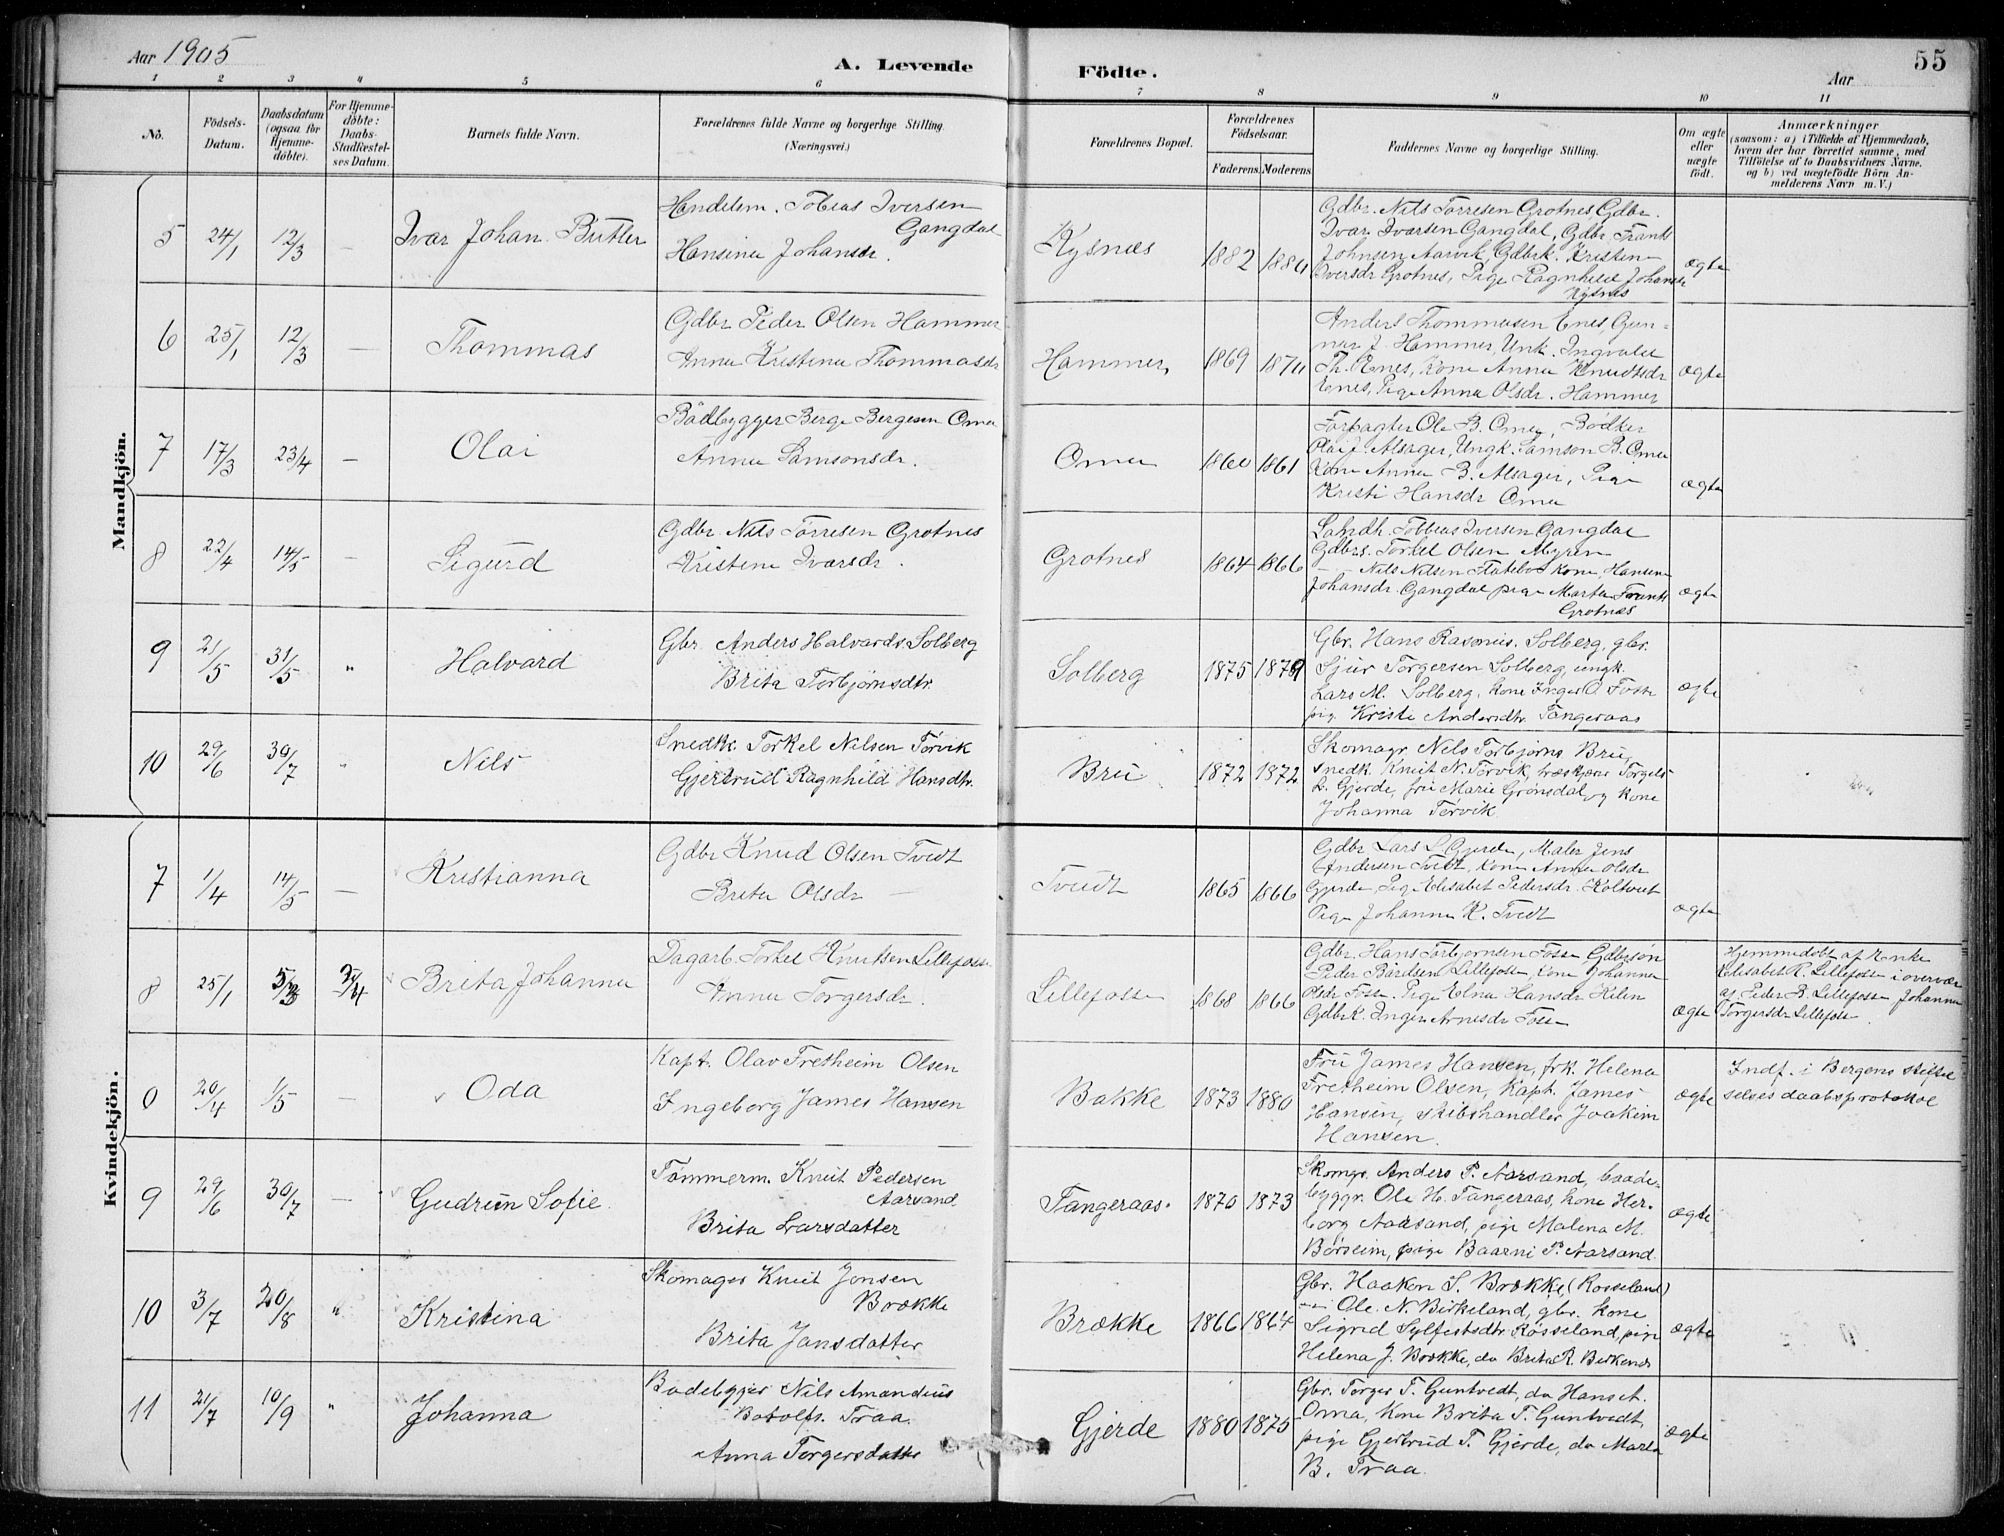 Aar 1905
A. Levende
Födte.
Aar
55
1 2 3 4 5 6 7 8 9 10 11
No.
Födsels-
Datum.
Daabsdatum
(ogsaa for
Hjemme-
døbte).
For Hjemme-
døbte:
Daabs-
Stadfæstel-
ses Datum.
Barnets fulde Navn.
Forældrenes fulde Navne og borgerlige Stilling.
(Næringsvei.)
Forældrenes Bopæl.
Forældrenes
Födselsaar.
Faderens. Moderens.
Faddernes Navne og borgerlige Stilling.
Om ægte
eller
uægte
født.
Anmærkninger
(saasom: a) i Tilfælde af Hjemmedaab,
hvem der har forrettet samme, med
Tilföielse af to Daabsvidners Navne.
og b) ved uægtefödte Börn An-
melderens Navn m. V.)
Mandkjön.
5 24/1 12/3 — Ivar Johan Butler
Handelsm. Tobias Iversen
Gangdal
Hansina Johansdr.
Kysnæs 1882 1884
Gdbr. Nils Torresen Grotnes, Gdbr.
Ivar Ivarsen Gangdal, Gdbr. Frants
Johnsen Aarvik, Gdbrk. Kristen
Iversdr Grotnes, Pige Ragnhild Johansdr
Kysnes
ægte
6 25/1 12/3 — Thommas
Gdbr Peder Olsen Hammer
Anna Kristina Thommasdr
Hammer 1869 1874
Anders Thommasen Enes, Gun-
nar J. Hammer, Unk. Ingvald
Th. Enes, Kone Anna Knudsdr
Enes, Pige Anna Olsdr. Hammer
ægte
7 17/3 23/4 — Olai
Bådbygger Berge Bergesen Oma
Anna Samsonsdr.
Oma 1860 1861
Forpagter Ole B. Oma, Bødker
Olai J. Alsager, Ungk. Samson B. Oma
Kone Anna B. Alsager, Pige
Kristi Hansdr Oma
ægte
8 22/4 14/5 — Sigurd
Gdbr Nils Torresen Grotnes
Kristene Ivarsdr.
Grotnes 1864 1866
Lahdh. Tobias Iversen Gangdal
Gdbrs. Torkel Olsen Myren
— Nils Nilsen Flatebø kone Hansene
Johansdr. Gangdal pige Marta Frants
Grotnæs
ægte
9 21/5 31/5 " Halvard
Gbr. Anders Halvards. Solberg
Brita Torbjørnsdtr.
Solberg 1875 1879
Gbr. Hans Rasmus. Solberg, gbr.
Sjur Torgersen Solberg, ungk.
Lars M. Solberg, kone Inger O. Fosse
pig. Kriste Andersdtr. Tangeraas
ægte
10 29/6 30/7 " Nils
Snedk. Torkel Nilsen Tørvik
Gjertrud Ragnhild Hansdtr.
Bru 1872 1872
Skomagr. Nils Torbjørns Bru,
snedk. Knut N. Tørvik, træskjærer Torgels
L. Gjerde, fru Marie Grønsdal og kone
Johanna Tørvik
Kvindekjön.
7 1/4 14/5 — Kristianna
Gdbr Knud Olsen Tvedt
Brita Olsdr
Tvedt 1865 1866
Gdbr Lars L Gjerde, Maler Jens
Andersen Tvedt, kone Anna Olsdr
Gjerde, Pig Elisabet Pedersdr. Koltveit
Pige Johanna K. Tvedt
ægte
8 25/1 5/3 3/4 Brita Johanna
Dagarb. Torkel Knutsen Lillefosse
Anna Torgersdr.
Lillefosse 1868 1866
Gdbr. Hans Torbjørnsen Fosse Gdbrsøn
Peder Bårdsen Lillefosse, Kone Johanna
Olsdr Fosse. Pige Elna Hansdr Helen
Gdbrk. Inger Arnesdr Fosse
ægte
Hjemmedøbt af Enke
Elisabet R. Lillefosse i overvær
af Peder B. Lillefosse Johanna
Torgersdr Lillefosse.
0 20/4 1/5 — Oda
Kapt. Olav Fretheim Olsen
Ingeborg James Hansen
Bakke 1873 1880
Fru James Hansen, frk. Helena
Fretheim Olsen, Kapt. James
Hansen, Skibshandler Joakim
Hansen.
ægte
Indf. i Bergens stiftel
selses daabsprotokol
9 29/6 30/7 — Gudrun Sofie.
Tømmerm. Knut Pedersen
Aarsand.
Brita Larsdatter
Tangeraas. 1870 1873
Skomgr. Anders P. Aarsand, baade-
byggr. Ole H. Tangeraas, kone Her-
borg Aarsand, pige Malena M.
Børseim, pige Baarni P. Aarsand.
ægte
10 3/7 20/8 " Kristina
Skomager Knut Jonsen
Brække
Brita Jansdatter
Brække 1866 1864
Gbr. Haakon S. Brække, (Rosseland)
Ole. N. Birkeland, gbr. kone
Sigrid Sylfestsdtr Røsseland, pige
Helena J. Brække, do Brita R. Birkenes
ægte
11 21/7 10/9 " Johanna
Badebygjer Nils Amandus
Botolfs. Traa.
Anna Torgersdatter
Gjerde 1880 1875
Gbr. Torger T. Guntvedt, do Hans A.
Oma, Kone Brita T. Guntvedt,
pige Gjertrud T. Gjerde, do Marta
B. Traa.
ægte